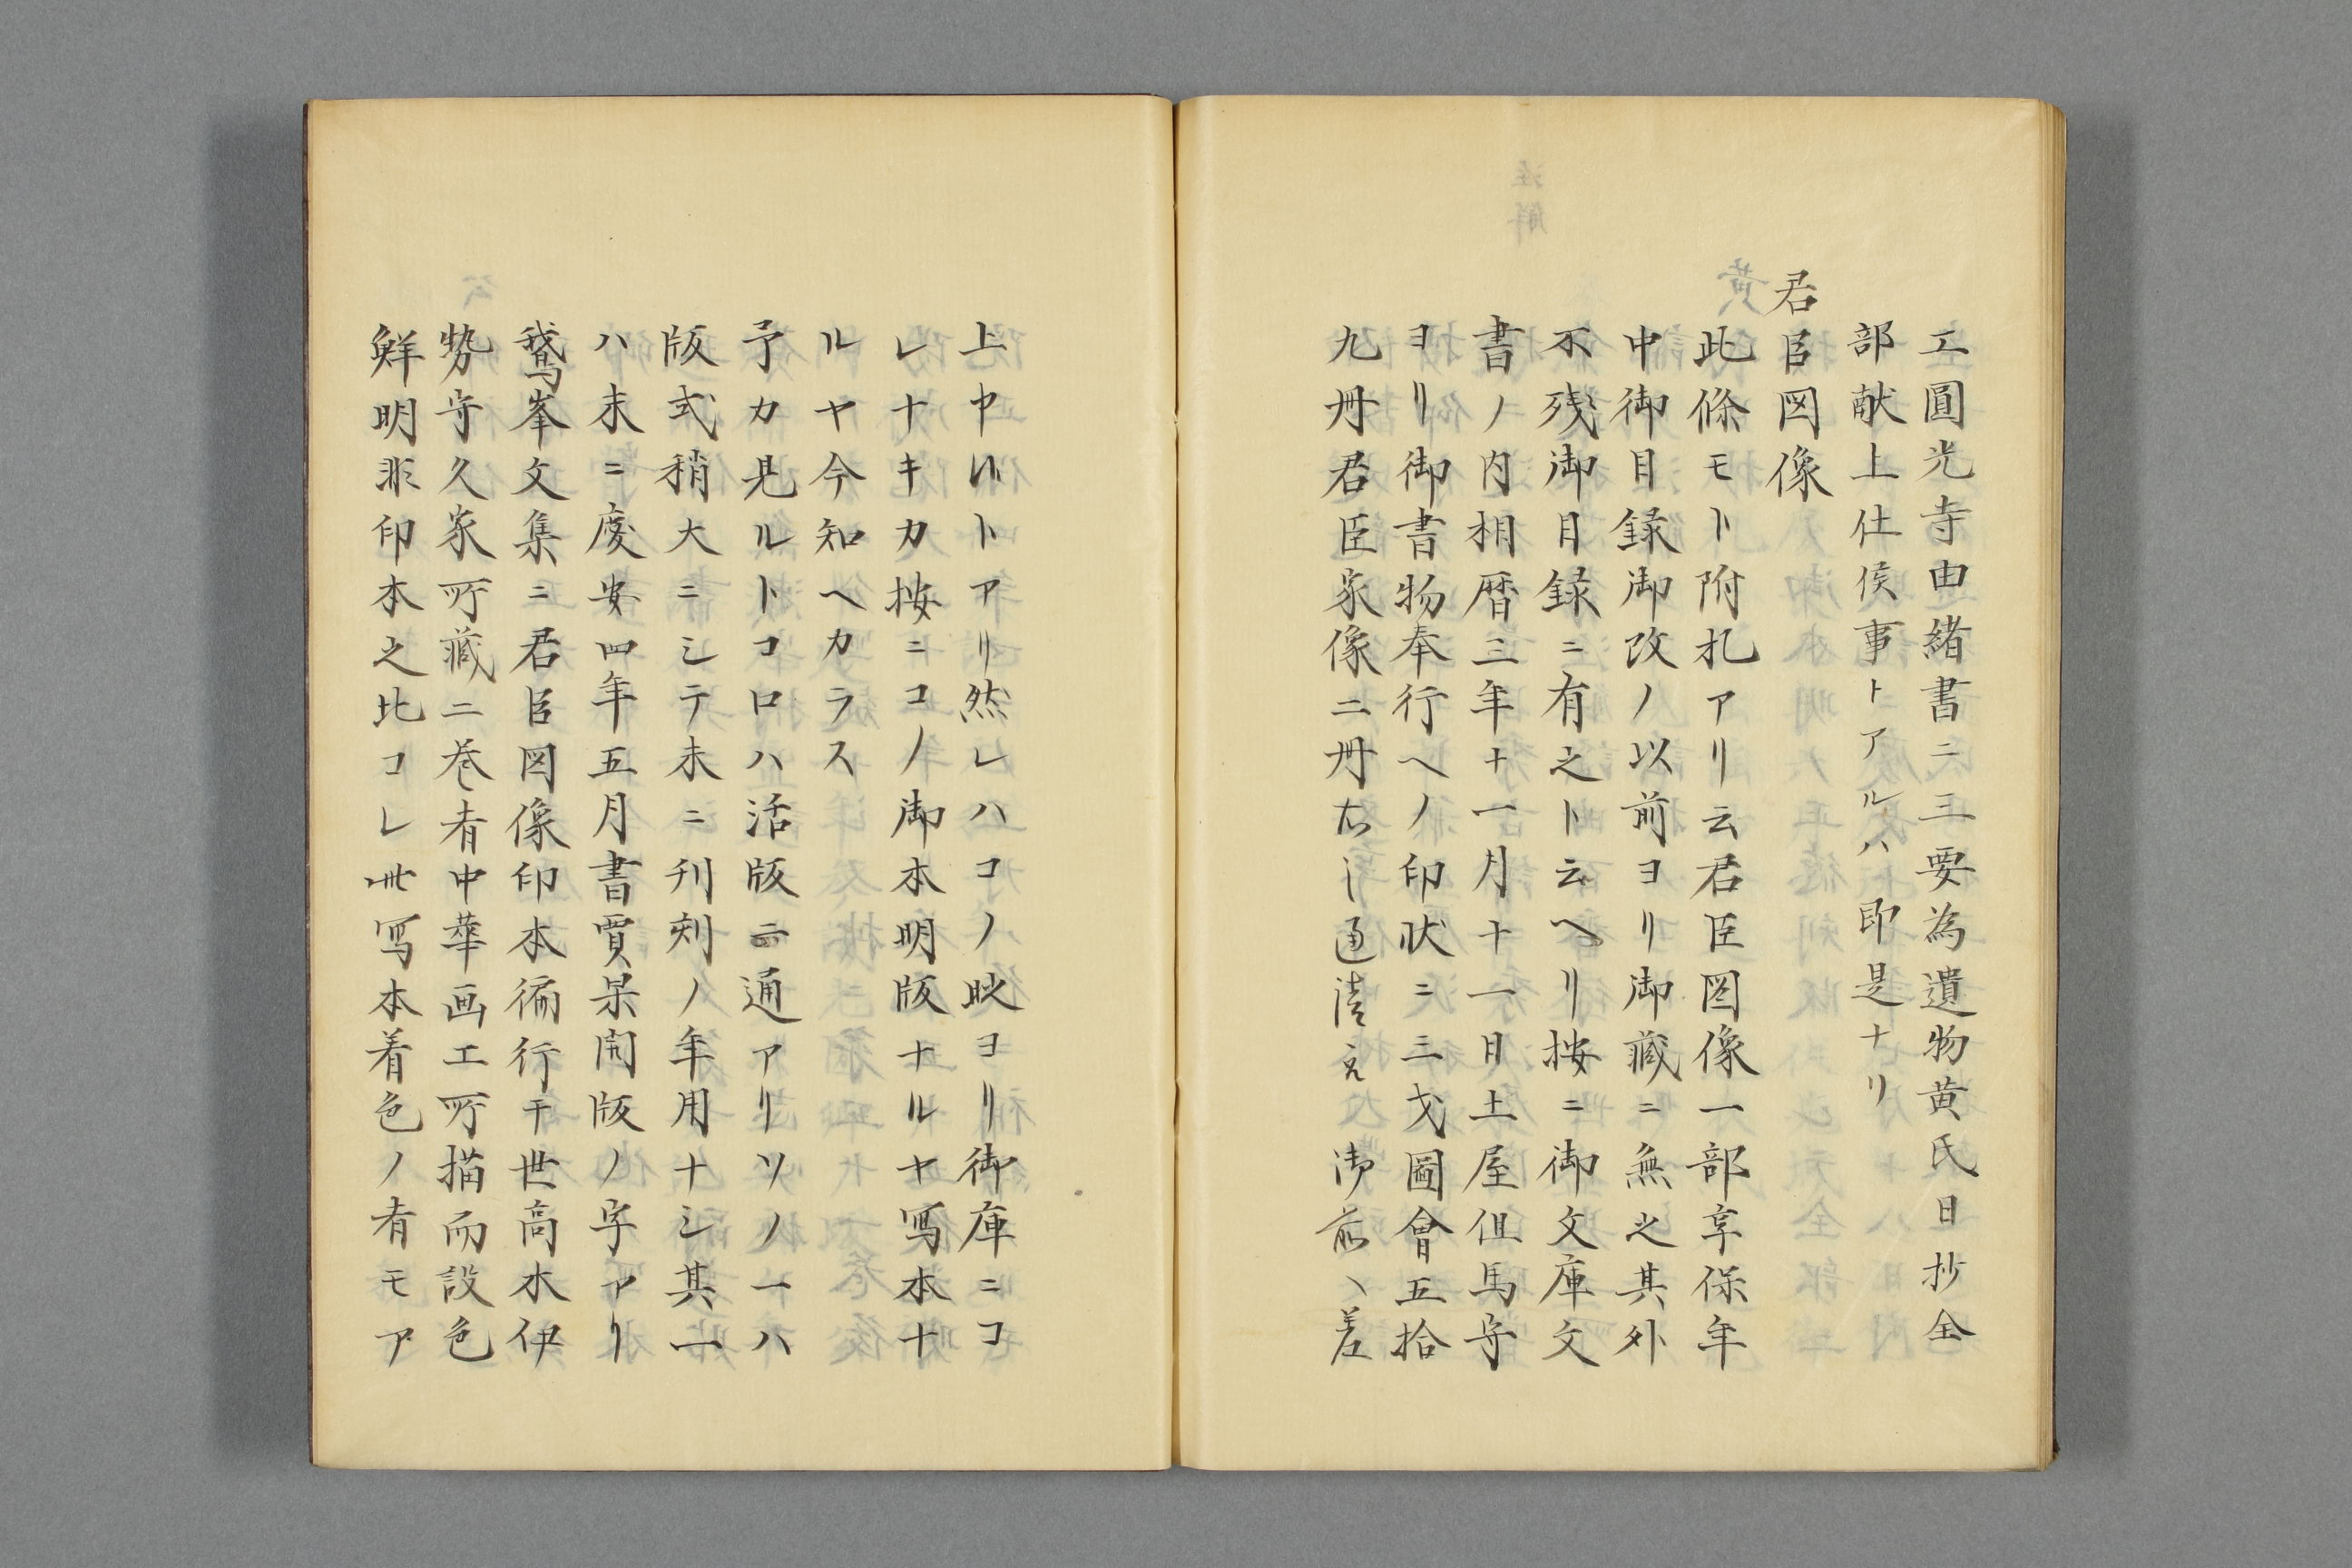 工圓光寺由緒書ニ三要為遺物黄氏日抄全
部献上仕侯事トアルハ即是ナリ
君臣図像
此條モト附札アリ云君臣図像一部享保年
中御目録御改ノ以前ヨリ御藏ニ無之其外
不残御目録ニ有之ト云ヘリ按ニ御文庫文
書ノ内明暦三年十一月十一日土屋但馬守
ヨリ御書物奉行ヘノ印状ニ三才圖會五拾
九冊君臣家像二冊右之通請取御前ヘ差
上ヤハトアリ然レハコノ時ヨリ御庫ニコ
レナキカ按ニコノ御本明版ナルヤ写本ナ
ルヤ今知ヘカラス
予カ見ルトコロハ活版二通アリソノ一ハ
版式稍大ニシテ末ニ刊刻ノ年用ナシ其一
ハ末ニ慶安四年五月書賈杲開版ノ字アリ
鵞峯文集ニ君臣図像印本徧行干世高木伊
勢守久家所藏二巻者中華画工所描而設色
鮮明非印本之比コレ丗写本着色ノ者モア